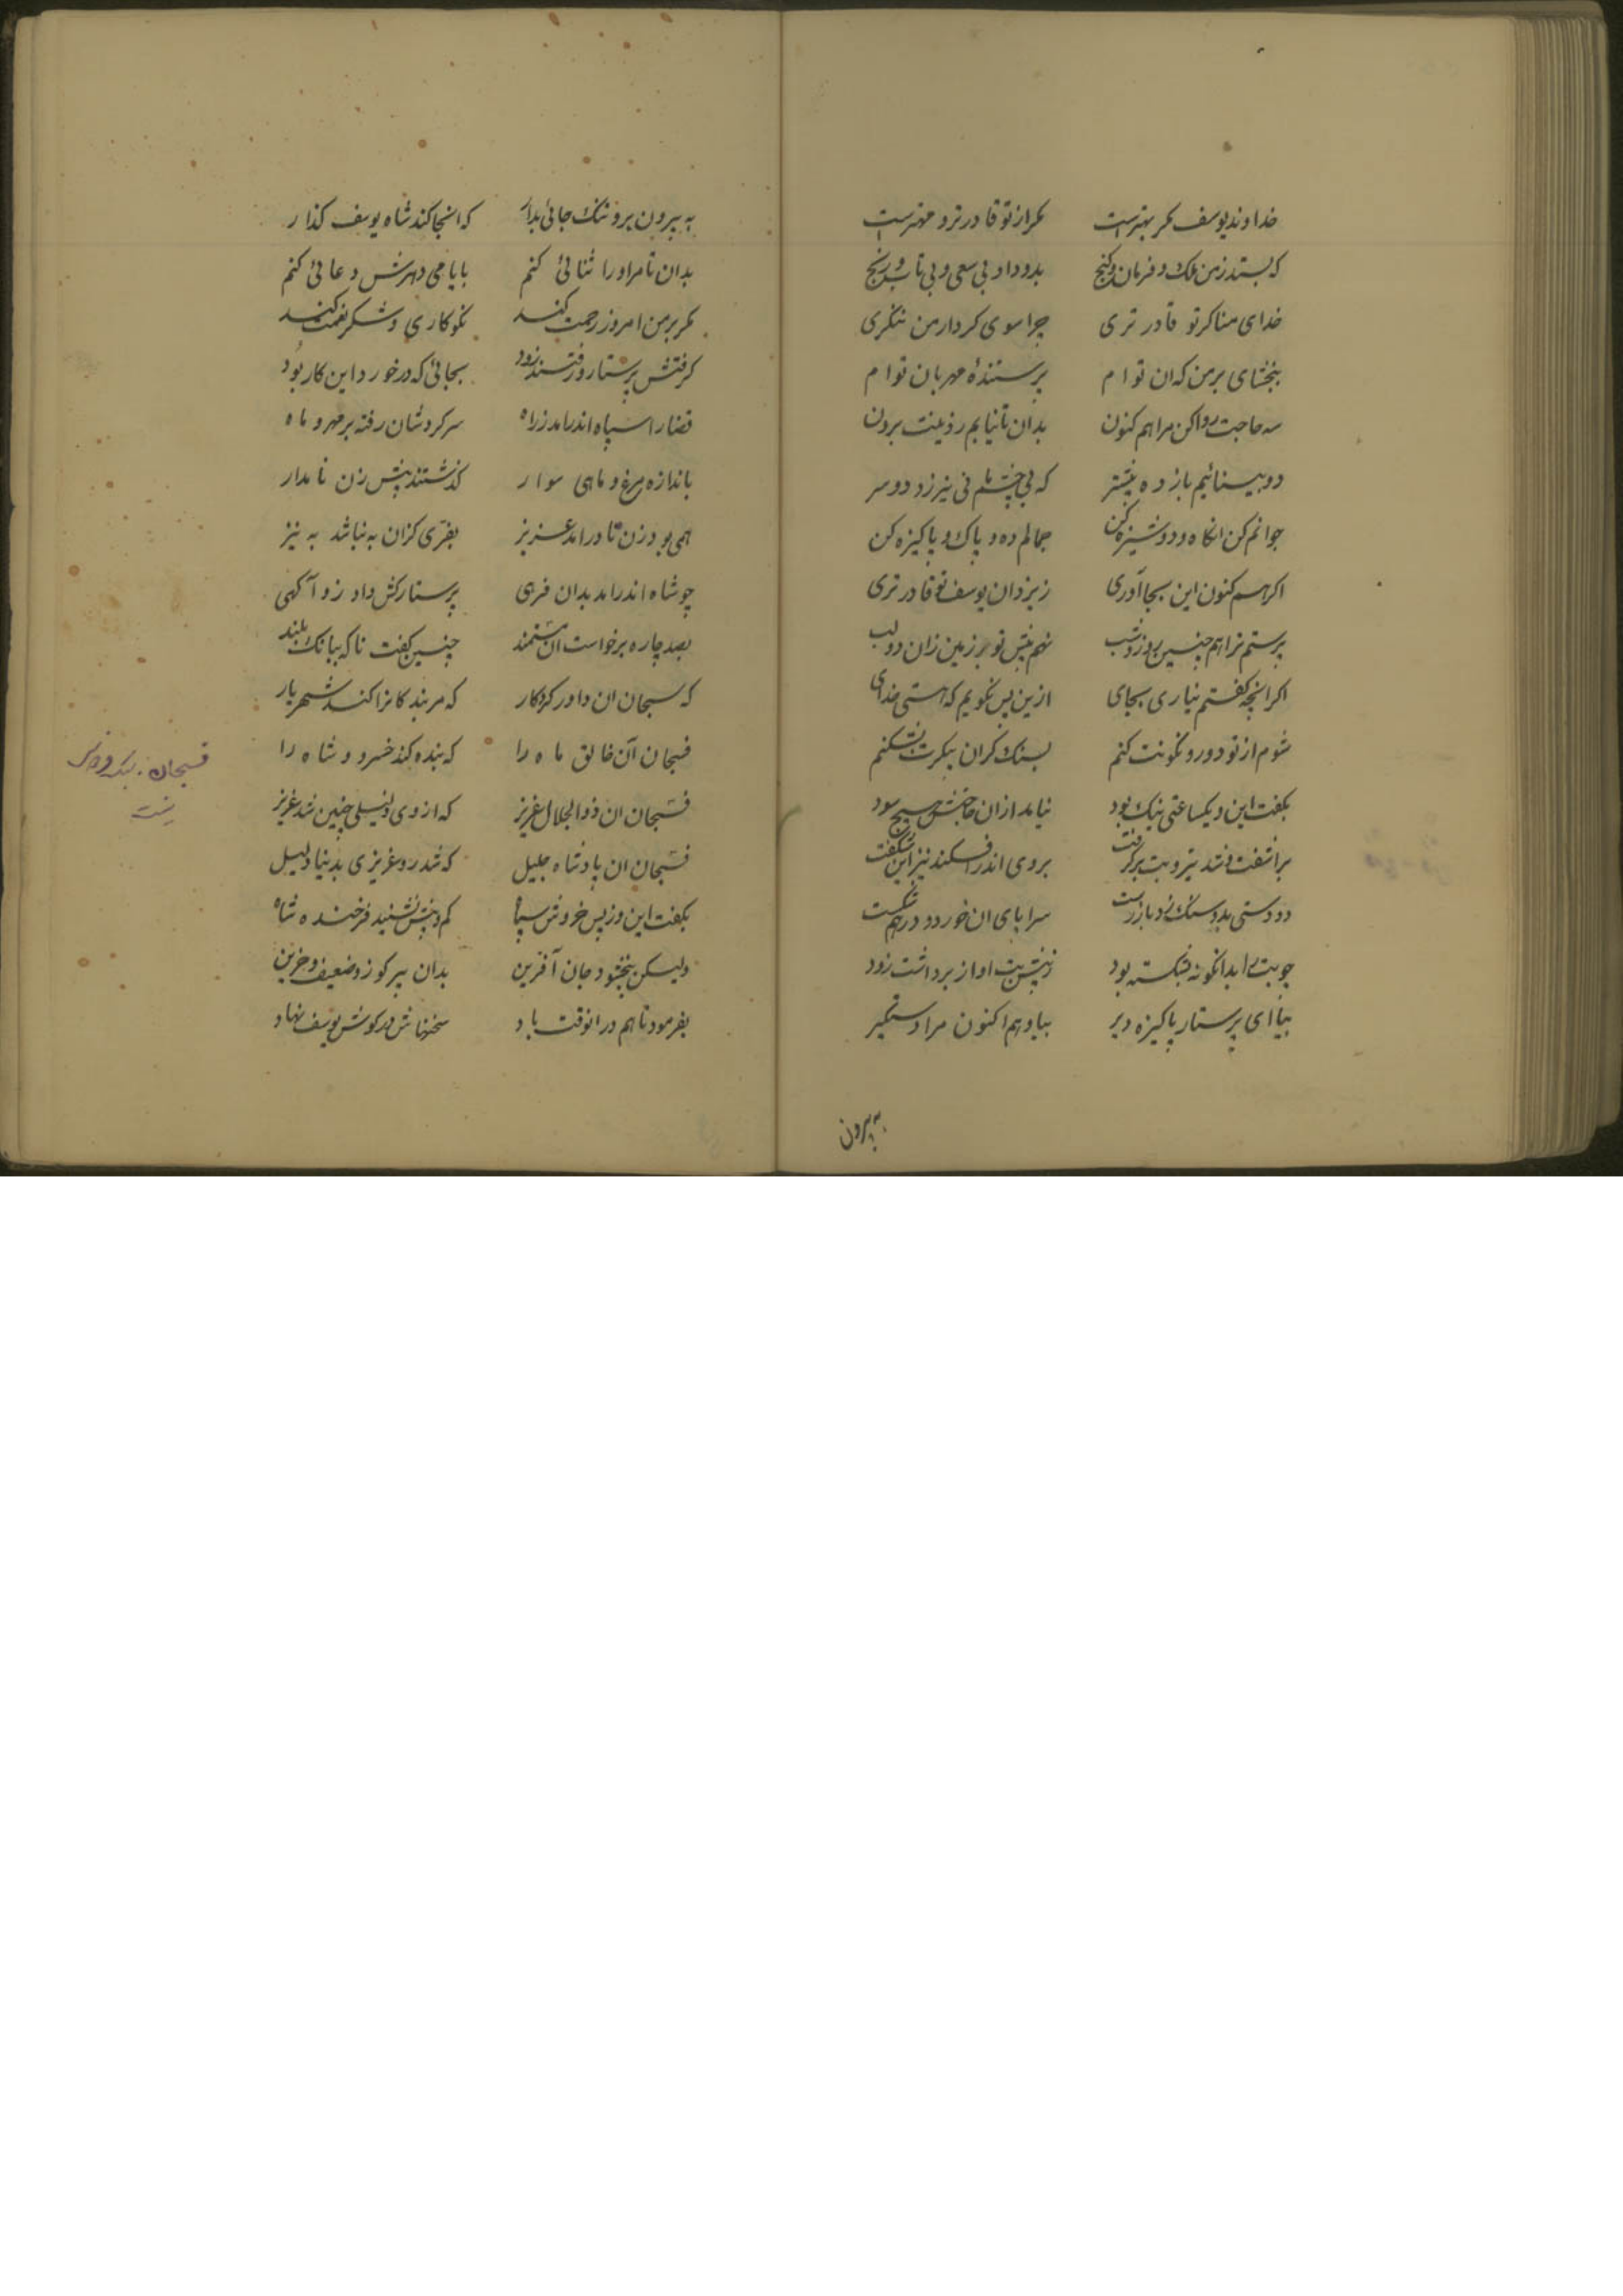 خداوند یوسف مگر بهترست مگر از تو قادرتر و مهترست
که بستد ز من ملک و فرمان و گنج بدو داد بی سعی و بی تاب و رنج
خدای منا گر تو قادرتری چرا سوی کردار من ننگری
ببخشای بر من که ان توام پرستندهٔ مهربان توام
سه حاجت روا کن مرا هم کنون بدان تا نیایم ز دینت برون
دو بینائیم باز ده پیشتر که بی چشم نی نیرزد دو سر
جوانم کن انگاه و دوشیزه کن جمالم ده و پاک و پاکیزه کن
اگر هم کنون این بجا آوری ز یزدان یوسف تو قادرتری
پرستم ترا هم چنین روز و شب نهم پیش تو بر زمین زان دو لب
اگر انچه گفتم نیاری بجای ازین پس نگویم که هستی خدای
شوم از تو دور و نگونت کنم بسنگ گران پیکرت بشکنم
بگفت این و یکساعتی نیک بود نیامد ازان حاجتش هیچ سود
براشفت و شد تیز و بت برگرفت بروی اندر افکند نیز این شگفت
دو دستی بدو سنگ زد باز رست سراپای ان خورد و در هم شکست
چو بت را بدانگونه بشکسته بود ز پیش بت اواز برداشت زود
بیا ای پرستار پاکیزه ویر بیا و هم اکنون مرا دستگیر
به بیرون
به بیرون برو نیک جائی بدار که انجا کند شاه یوسف گذار
بدان تا مر او را ثنائی کنم بایامی دهرش دعائی کنم
مگر بر من امروز رحمت کند نکوکاری و شکر نعمت کند
گرفتش پرستار و رفتند زود بجائی که در خورد این کار بود
قضا را سپاه اندر امد ز راه سر گردشان رفته بر مهر و ماه
باندازه مرغ و ماهی سوار گذشتند پیش زن نامدار
همی بود زن تا در امد عزیز بفری کزان به نباشد به نیز
چو شاه اندر امد بدان فرهی پرستارکش داد زو آگهی
بصد چاره برخاست ان مستمند چنین گفت ناگه ببانک بلند
که سبحان ان داور کردگار که مر بندگانرا کند شهریار
فسبحان آن خالق ماه را که بنده کند خسرو و شاه را
فسبحان ان ذوالجلال عزیز که از وی ذلیلی چنین شد عزیز
فسبحان ان پادشاه جلیل که شد زو عزیزی بدنیا ذلیل
بگفت این وز پس خروش سپاه کم و بیش نشنید فرخنده شاه
ولیکن ببخشود جان آفرین بدان پیر کوز و ضعیف و حزین
بفرمود تا هم در انوقت باد سخنهاش در گوش یوسف نهاد
فسبحان
نیست